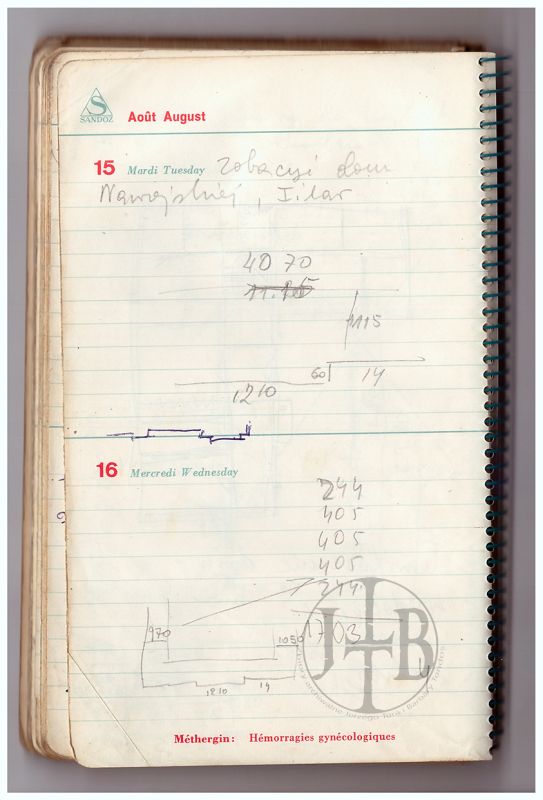 S
SANDOZ
Août August
15 Mardi Tuesday Zobaczyć dom
Nawojskiej, I.
40 70
1115
60 14
1210
16 Mercredi Wednesday
244
405
405
405
244
1703
970
1050
1210 14
JLTB
Méthergin: Hémorragies gynécologiques